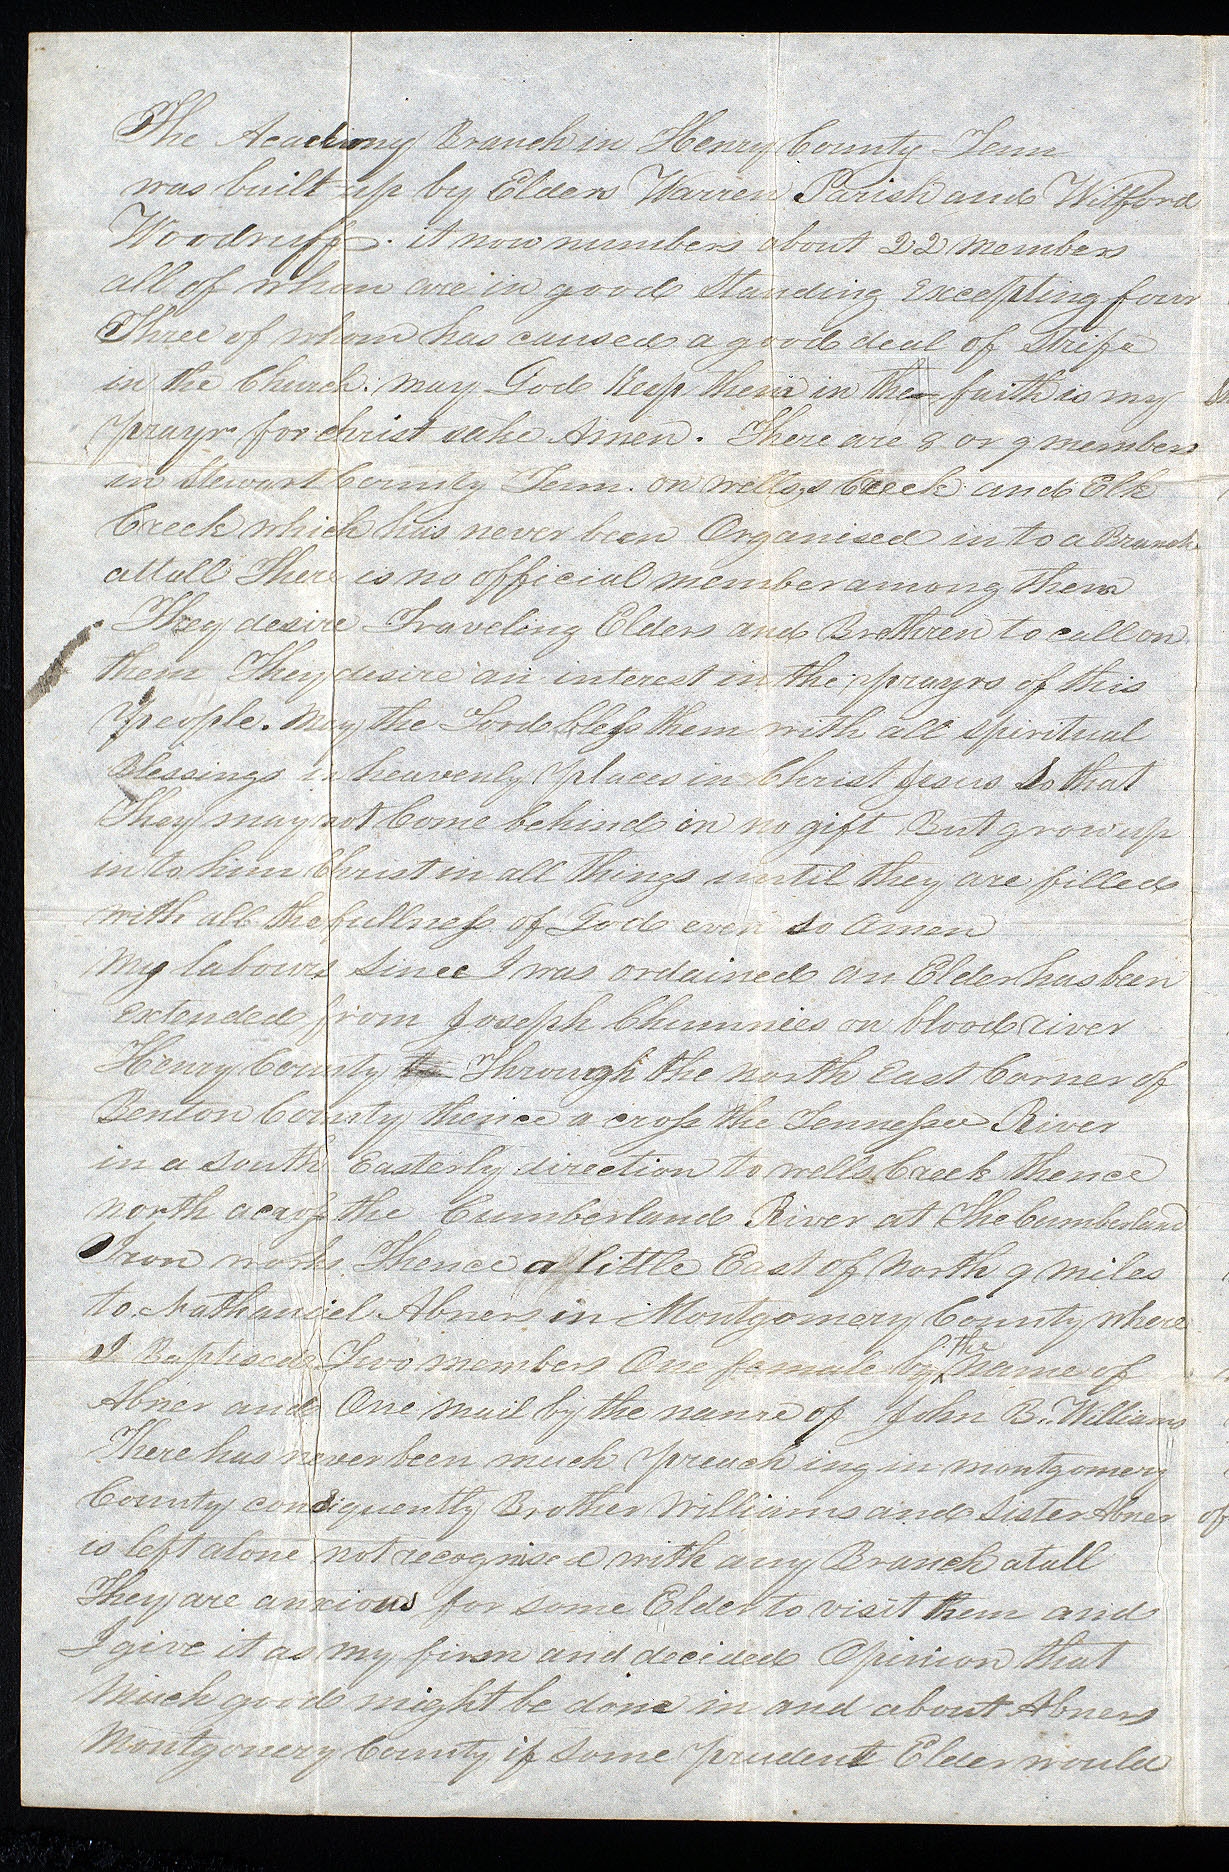 The Academy Branch in Henry County Tenn
was built up by Elders Warren Parish and Wilford
Woodruff. it now numbers about 22 members
all of whom are in good Standing Excepting four
Three of whom has caused a good deal of Strife
in the Church. may God Keep them in the faith is my
prayr for christ sake Amen. There are 8 or 9 members
in Stewart County Tenn. on wells,s Creek and Elk
Creek which has never been Organised in to a Branch
attall There is no official member among them
They desire Traveling Elders and Brethren to call on
them They desire an interest in the prayrs of this
people. May the Lord bless them with all spiritual
Blessings in heavenly places in Christ Jesus So that
They may not Come behind in no gift But grow up
in to him Christ in all things until they are filled
with all the fullness of God even so Amen
My labours since I was ordained an Elder has been
extended from Joseph Chumnies on blood river
Henry County Through the north East Corner of
Benton County thence a cross the Tennessee River
in a South Easterly direction to wells Creek thence
north across the Cumberland River at The Cumberland
Iron works Thence a little East of North 9 miles
to Nathaniel Abners in Montgomery County where
I Baptised Two members One female by the name of
Abner and One mail by the name of John B. Williams
There has never been much preach ing in montgomery
County consiquently Brother Williams and Sister Abner
is left alone not recognised with any Branch atall
They are anxious for some Elder to visit them and
I give it as my firm and decided Opinion that
Much good might be done in and about Abners
Montgomery County if Some prudent Elder would